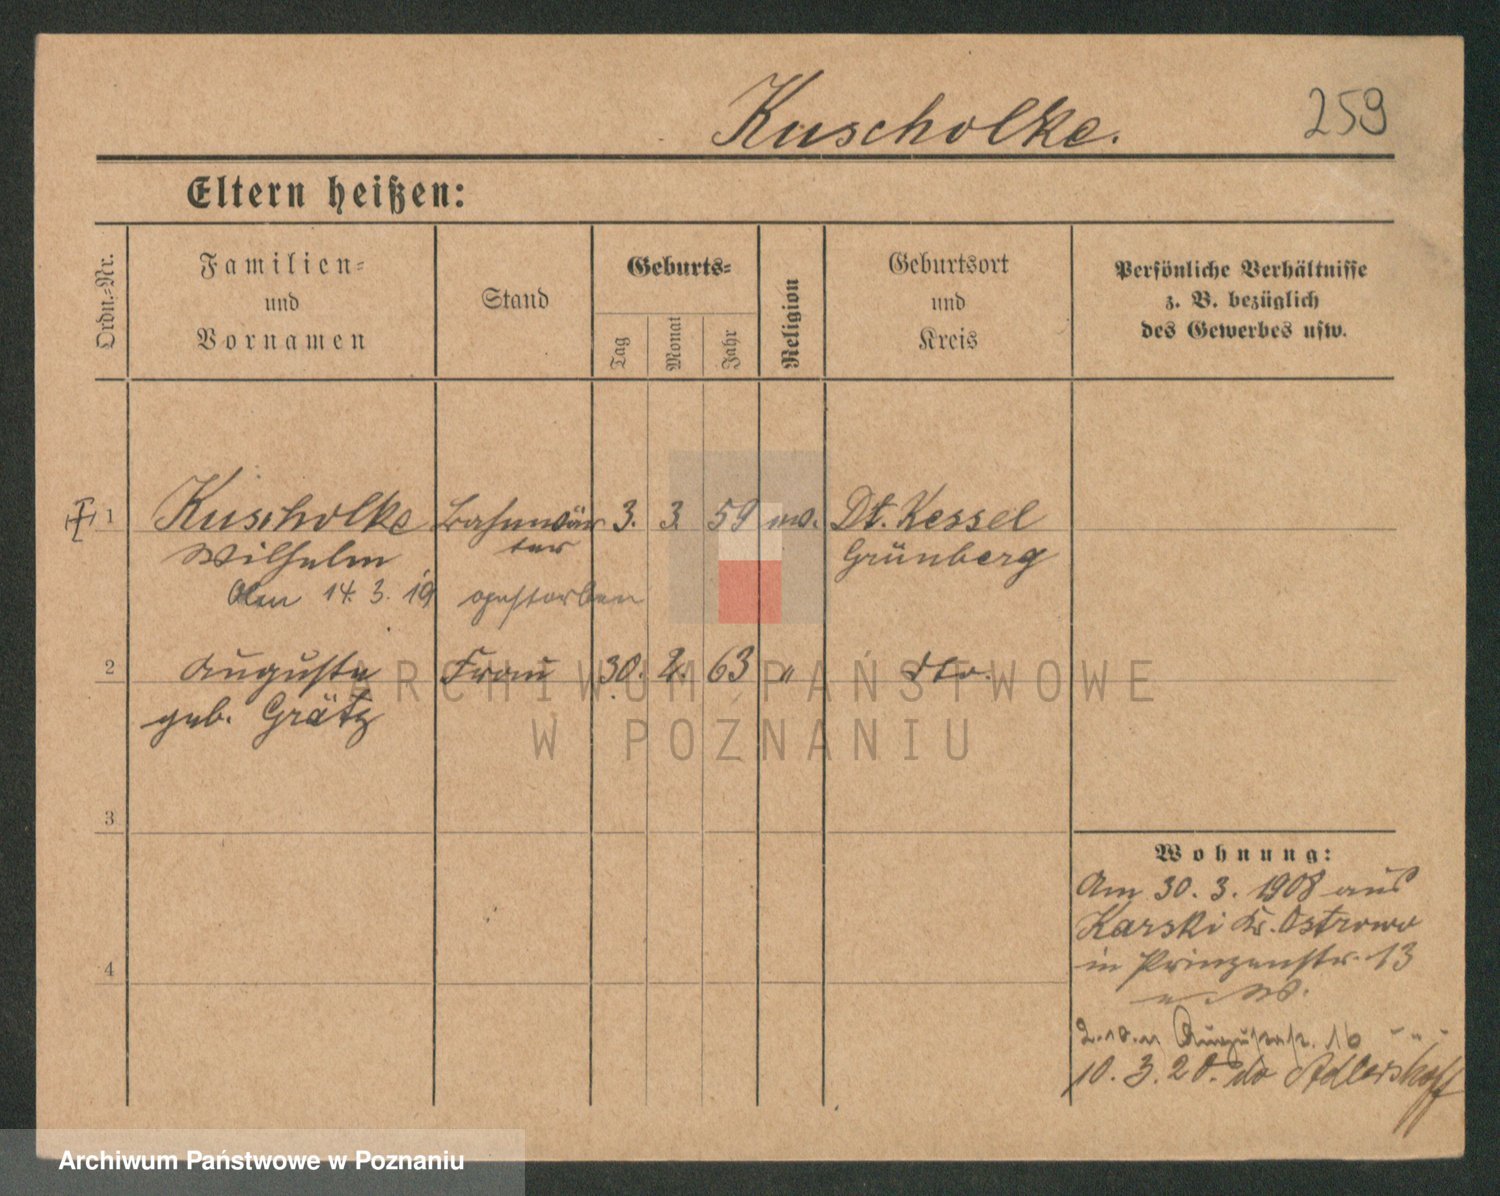 Kuscholke.
259
Eltern heißen:
Ordn.-Nr.
Familien-
und
Vornamen
Stand
Geburts-
Tag
Monat
Jahr
Religion
Geburtsort
und
Kreis
Persönliche Verhältnisse
z. B. bezüglich
des Gewerbes usw.
1 Kuscholke Bahnwär 3. 3. 59 ev. Dt. Kessel
Wilhelm ter Grünberg
Am 14. 3. 19 gestorben
2 Auguste Frau 30. 2. 63 " dto.
geb. Grätz
3
4
Wohnung:
Am 30. 3. 1908 aus
Karski Kr. Ostrowo
in Prinzenstr. 13
Augustastr. 16
10. 3. 20. do Adlershoff
ARCHIWUM PAŃSTWOWE
W POZNANIU
Archiwum Państwowe w Poznaniu